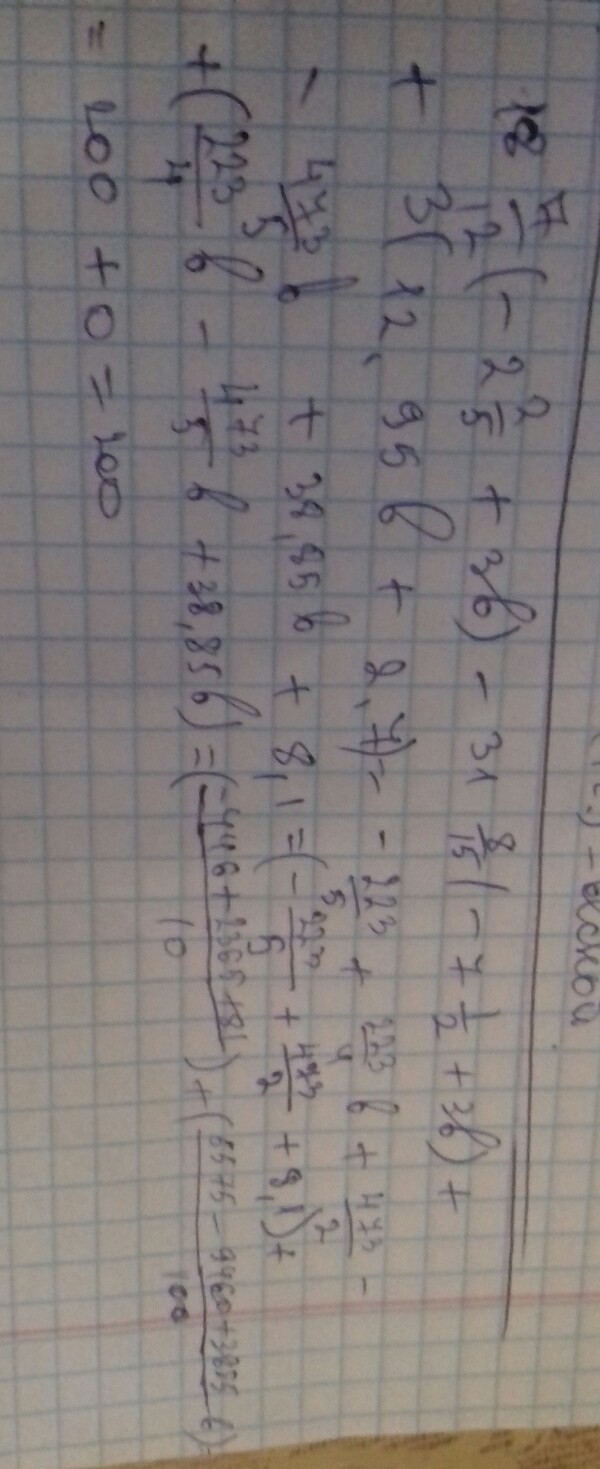 18 7/12 (- 2 2/5 + 3b) - 31 8/15 (- 7 1/2 + 3b) +
+ 3(12,95b + 2,7) = - 223/5 + 223/4 b + 473/2 -
- 473/5 b + 38,85b + 8,1 = (- 223/5 + 473/2 + 8,1) +
+ (223/4 b - 473/5 b + 38,85b) = (-446 + 2365 + 81)/10 + (5575 - 9460 + 3885)/100 b) =
= 200 + 0 = 200